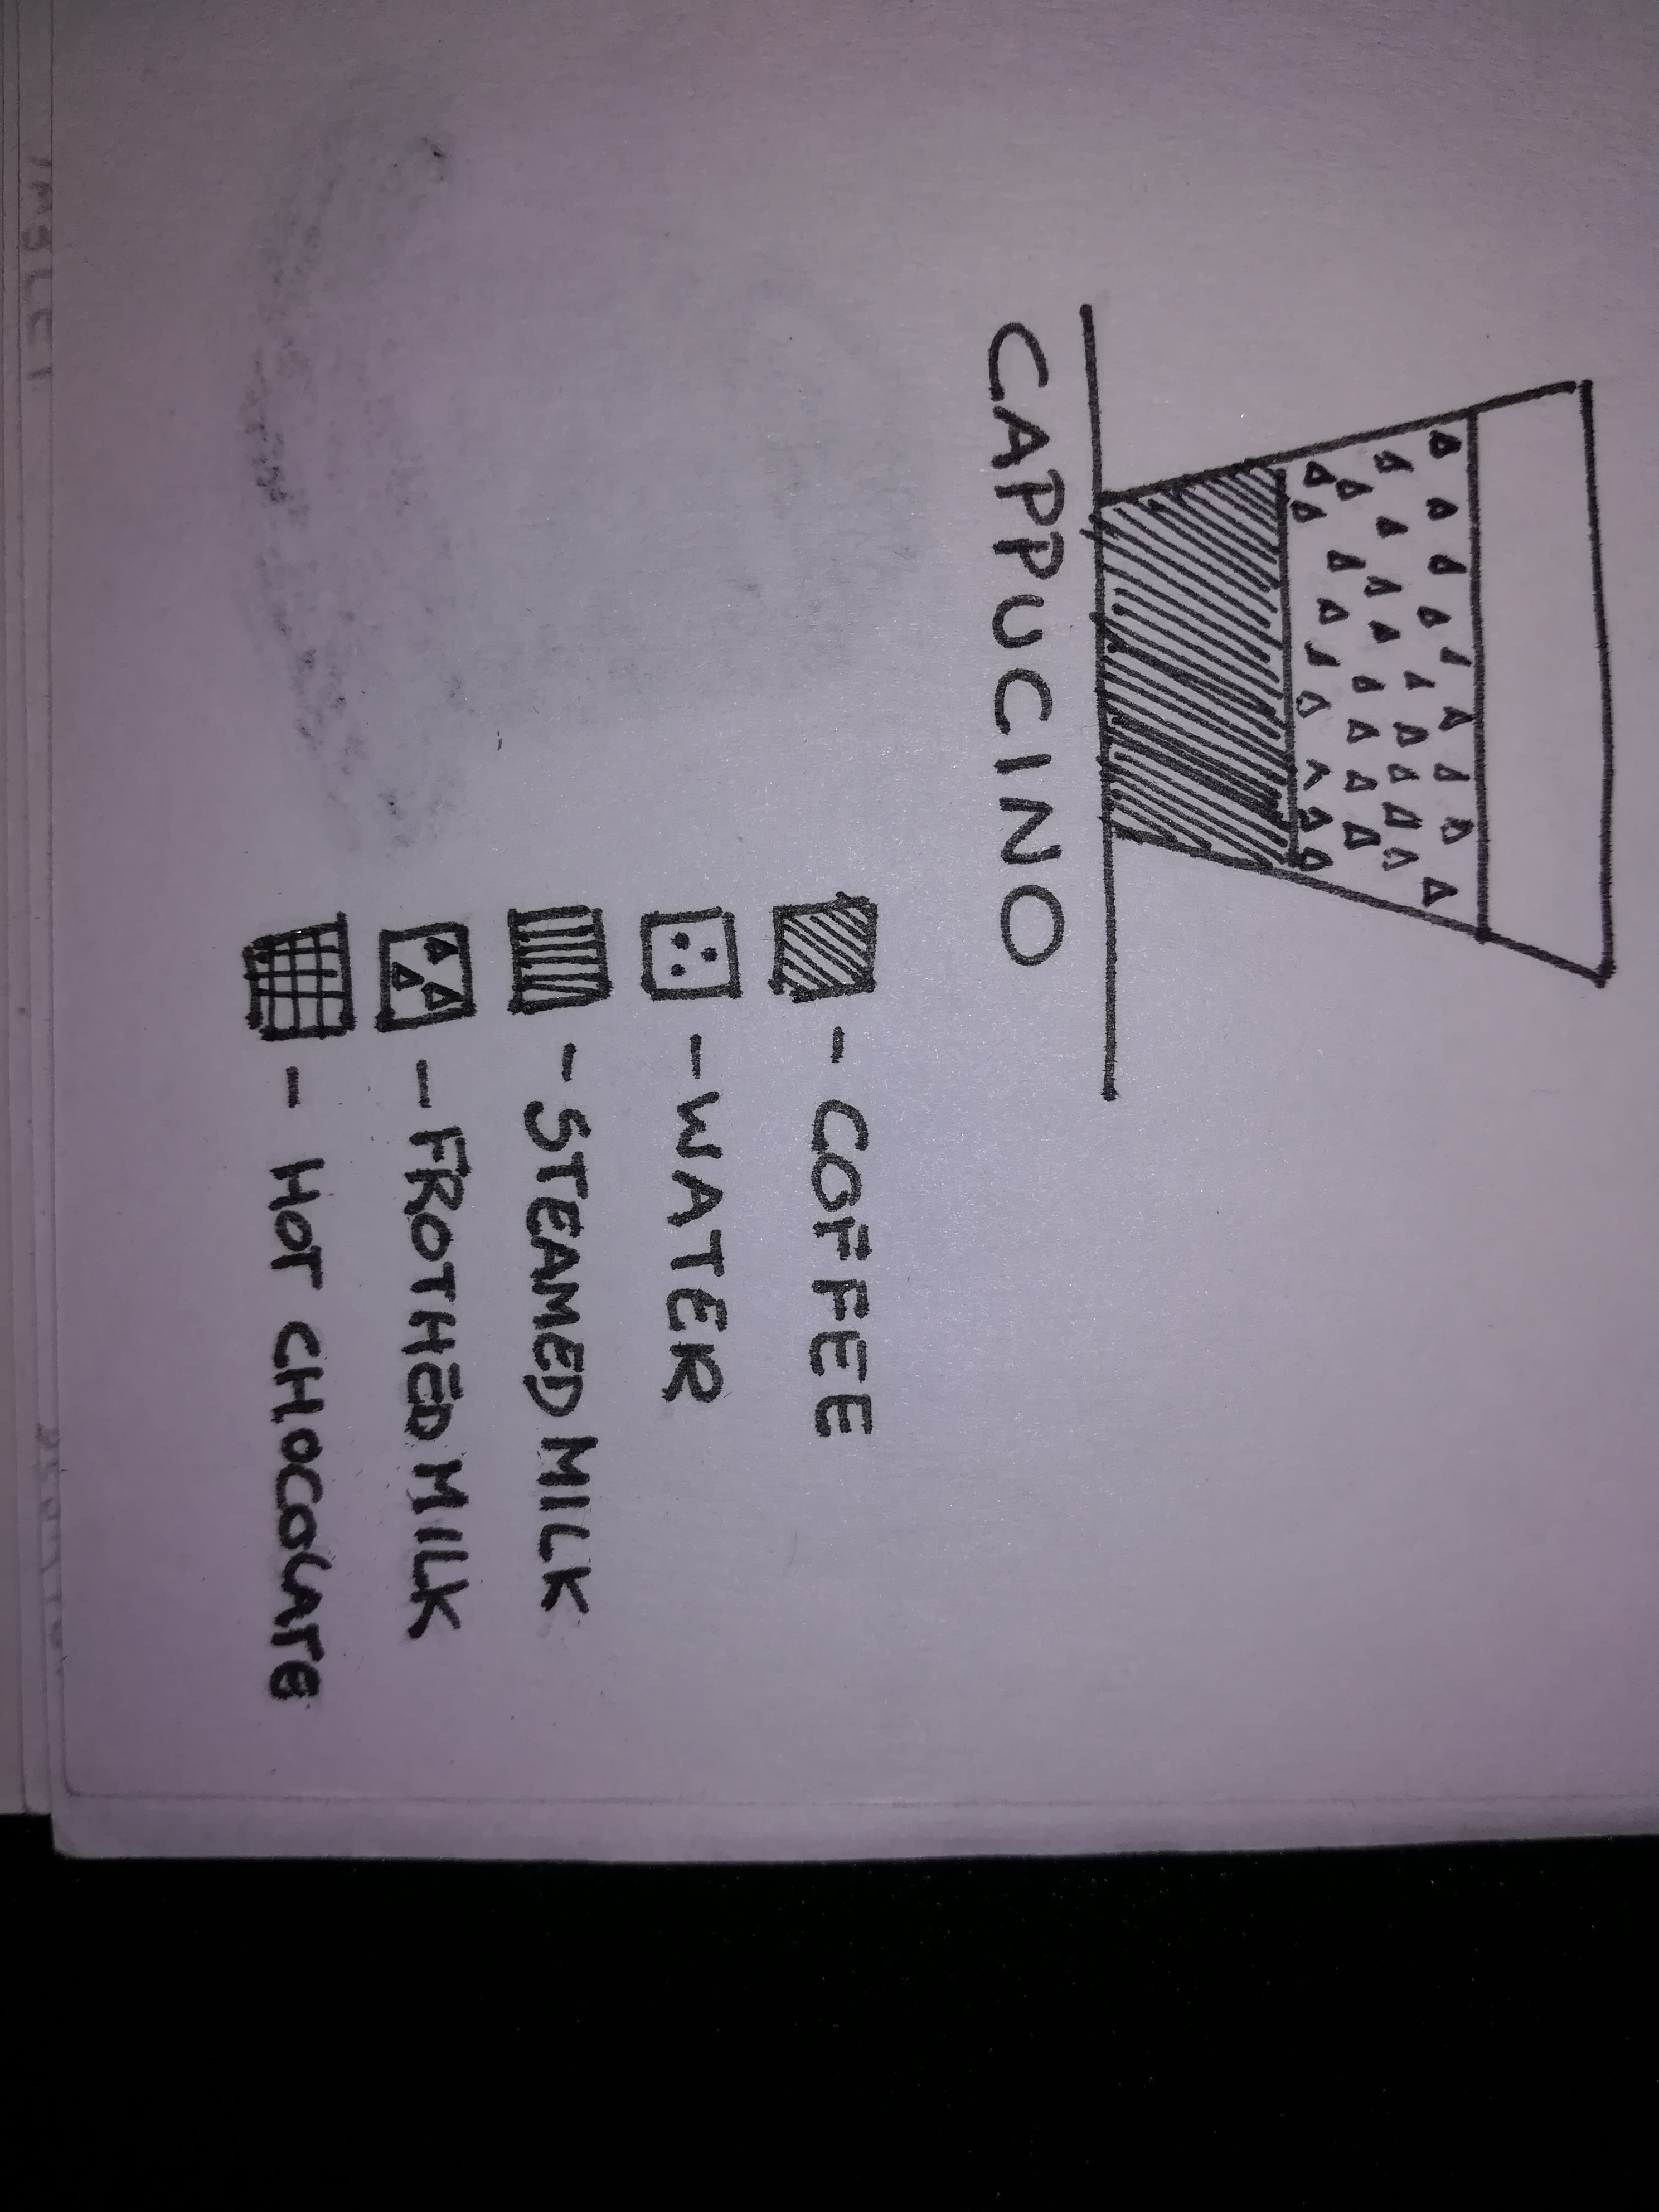 CAPPUCINO
- COFFEE
- WATER
- STEAMED MILK
- FROTHED MILK
- HOT CHOCOLATE